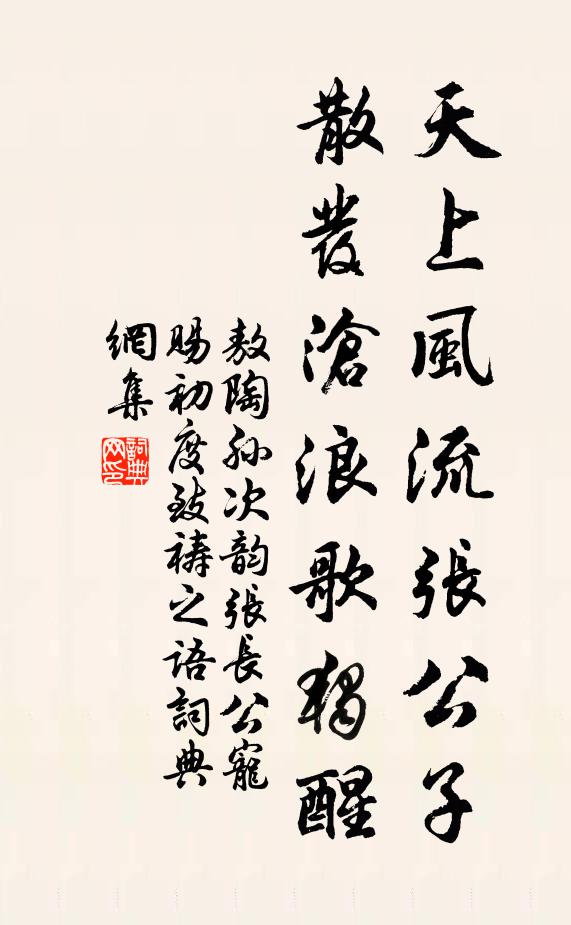 天上風流張公子
散發滄浪歌獨醒
敖陶孫次韵張長公寵
賜初度致禱之語詞典
網集
詞典網印